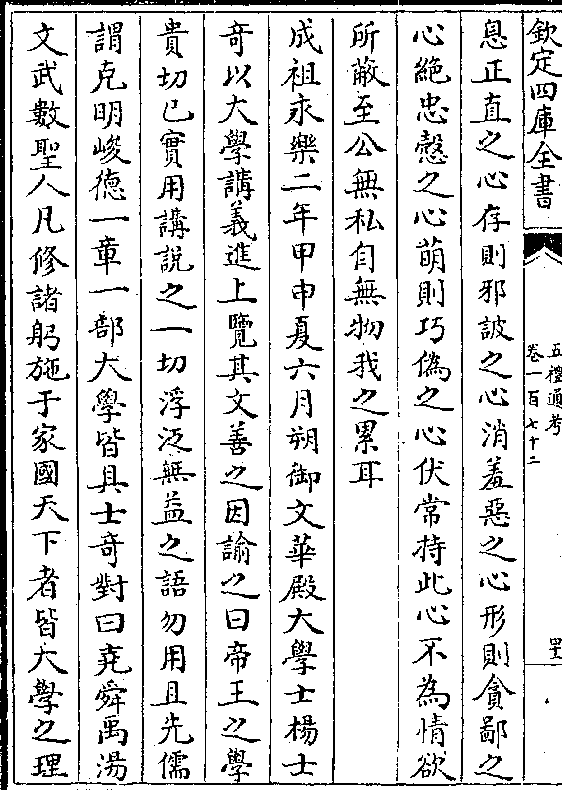 欽定四庫全書
五禮通考
卷一百七十二
息正直之心存則邪詖之心消羞惡之心形則貪鄙之
心絶忠慤之心萌則巧偽之心伏常持此心不為情欲
所蔽至公無私自無物我之累耳
成祖永樂二年甲申夏六月朔御文華殿大學士楊士
奇以大學講義進上覽其文善之因諭之曰帝王之學
貴切已實用講説之一切浮泛無益之語勿用且先儒
謂克明峻德一章一部大學皆具士奇對曰堯舜禹湯
文武數聖人凡修諸躬施于家國天下者皆大學之理